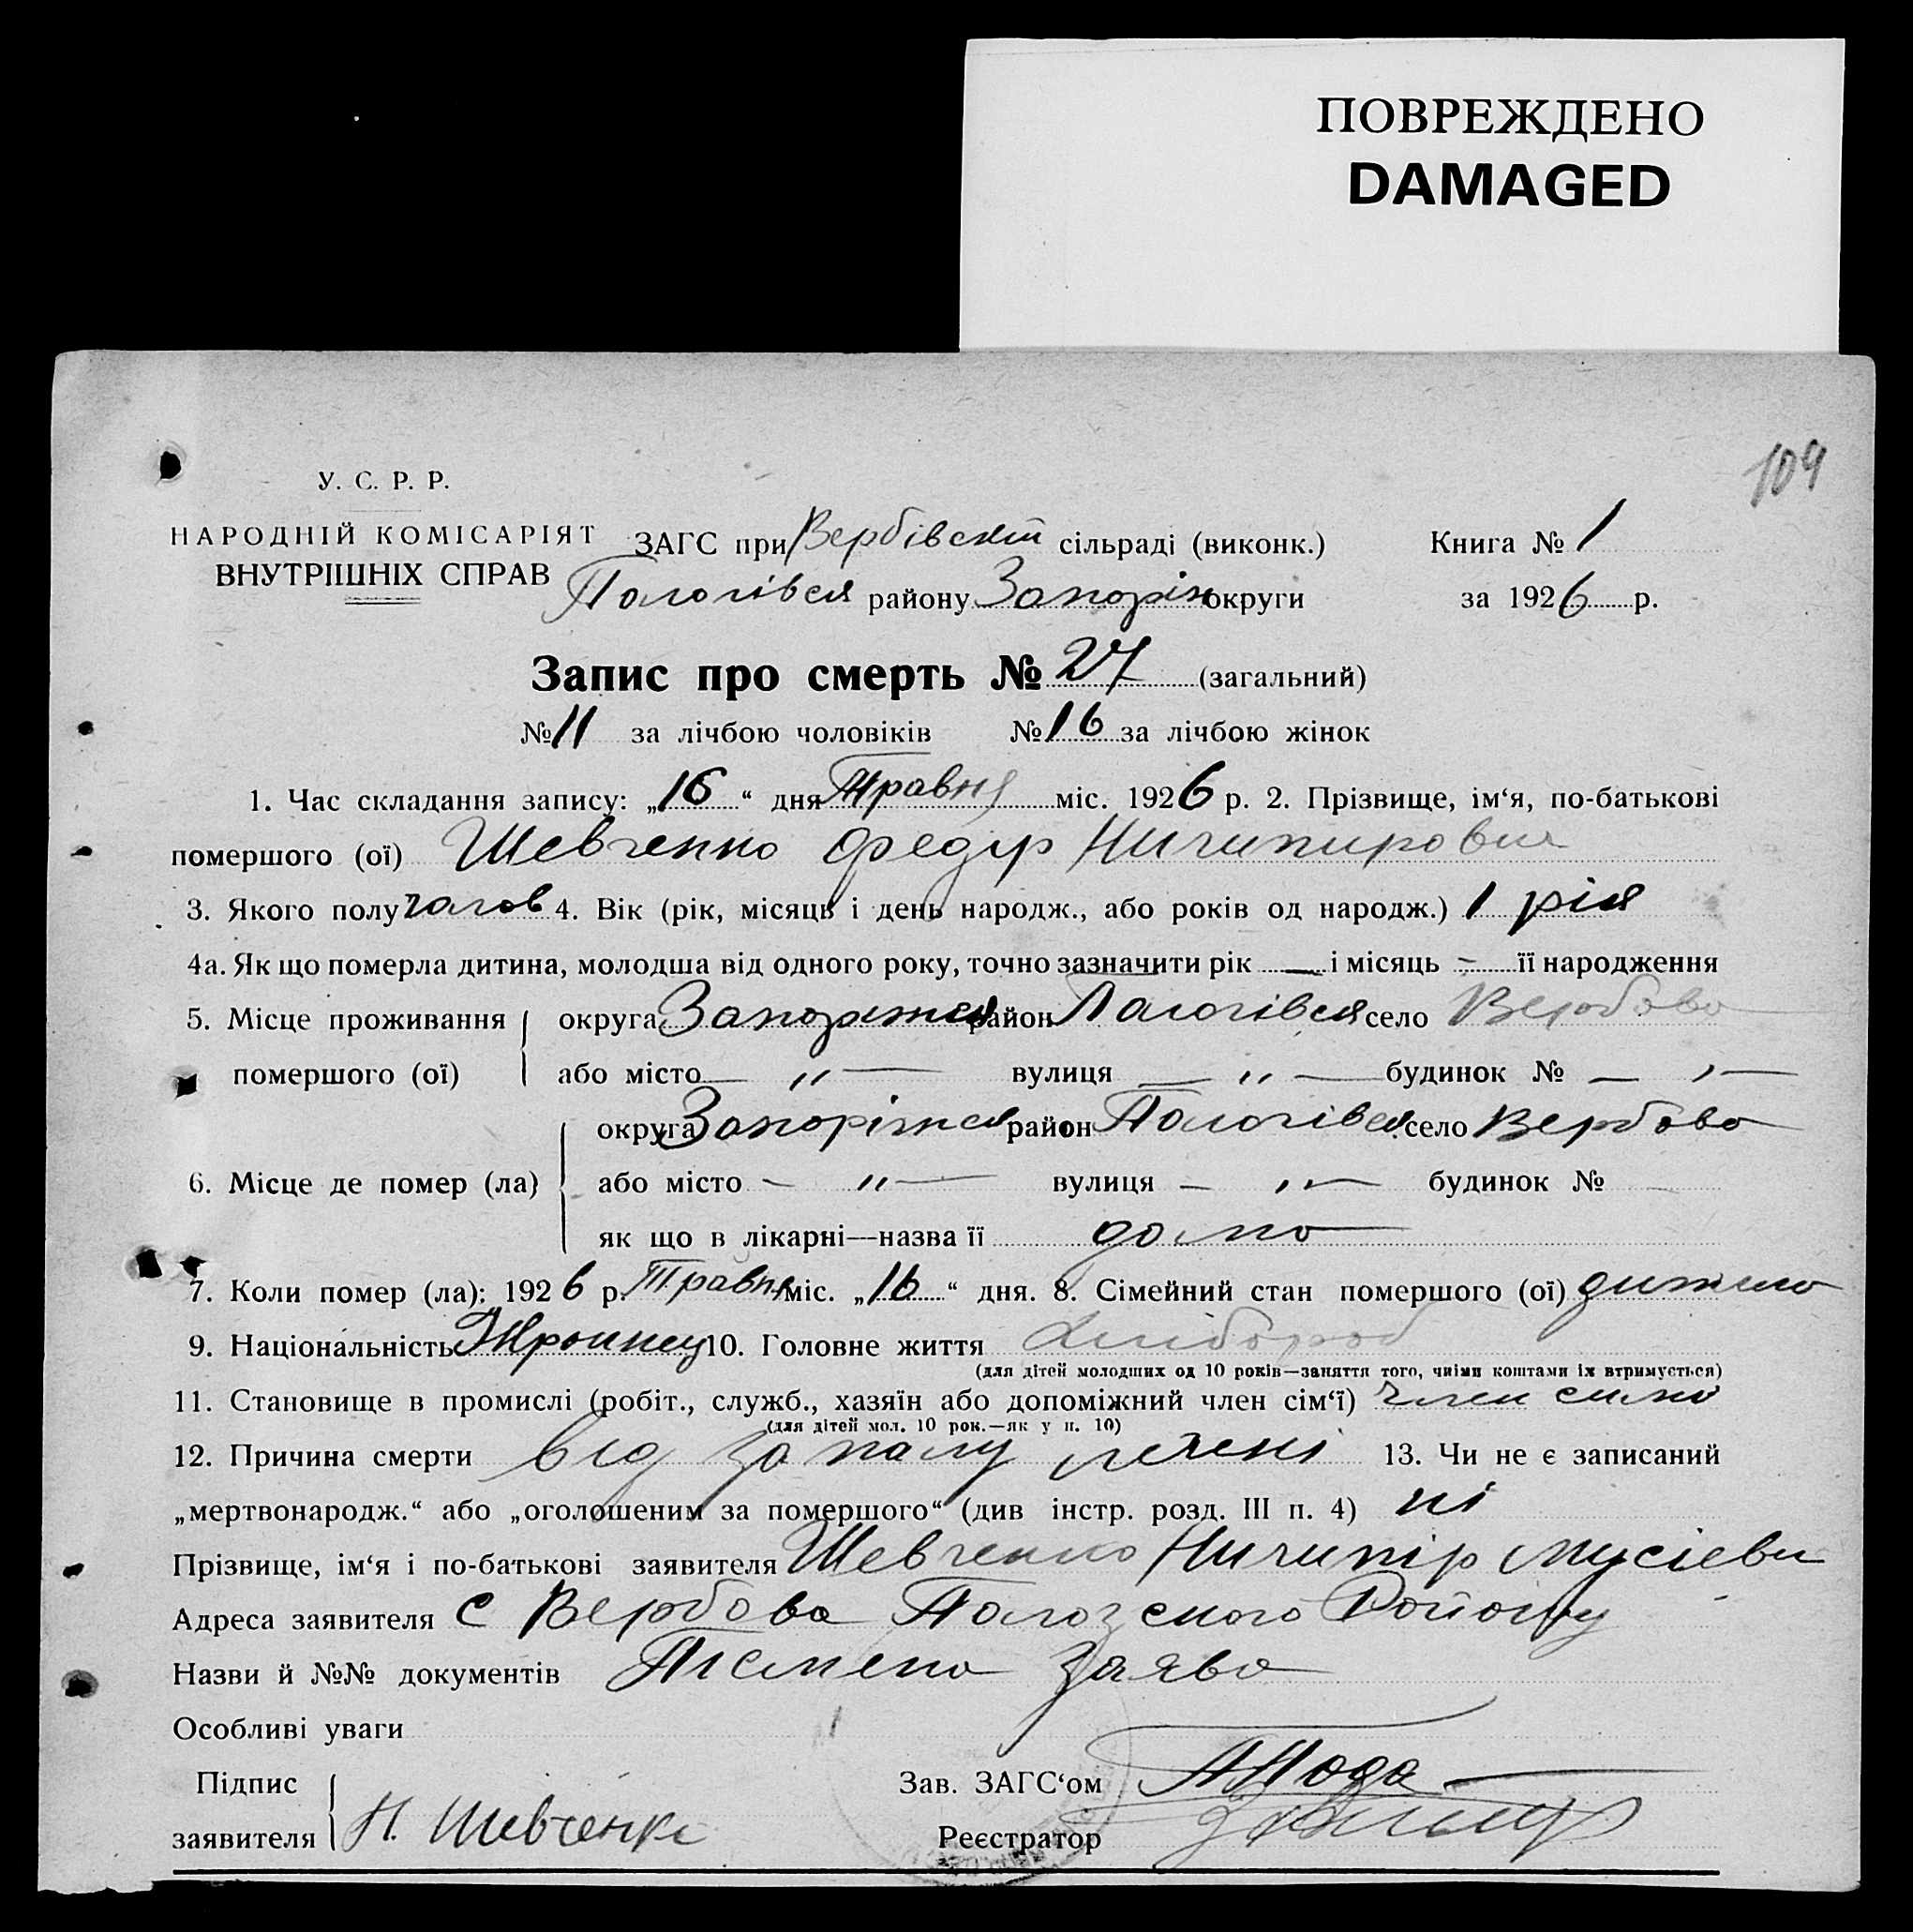 ПОВРЕЖДЕНО
DAMAGED
109
У. С. Р. Р.
НАРОДНІЙ КОМІСАРІЯТ
ВНУТРІШНІХ СПРАВ
ЗАГС при Вербівскій сільраді (виконк.) Книга № 1
Пологівся району Запоріж округи за 1926 р.
Запис про смерть № 27 (загальний)
№ 11 за лічбою чоловіків № 16 за лічбою жінок
1. Час складання запису: „16“ дня Травня міс. 1926 р. 2. Прізвище, ім‘я, по-батькові
помершого (ої) Шевченко Федір Ничипирович
3. Якого полу чолов 4. Вік (рік, місяць і день народж., або років од народж.) 1 рік
4а. Як що померла дитина, молодша від одного року, точно зазначити рік — і місяць - її народження
5. Місце проживання округа район Пологівся село Вербова
помершого (ої) або місто — „ — вулиця — „ — будинок № — „ —
округа Запоріжся район Пологівся село Вербова
6. Місце де помер (ла) або місто - „ — вулиця — „ — будинок №
як що в лікарні—назва її дома
7. Коли помер (ла): 1926 р. Травня міс. „16“ дня. 8. Сімейний стан помершого (ої) дитина
9. Національність Украинец 10. Головне життя Хлібороб
(для дітей молодших од 10 років—заняття того, чиїми коштами їх втримується)
11. Становище в промислі (робіт., служб., хазяїн або допоміжний член сім‘ї) член сим‘ї
(для дітей мол. 10 рок.—як у п. 10)
12. Причина смерти від запалу печені 13. Чи не є записаний
„мертвонародж.“ або „оголошеним за помершого“ (див інстр. розд. III п. 4) ні
Прізвище, ім‘я і по-батькові заявителя Шевченко Ничипір Мусіеви
Адреса заявителя с Вербова Пологского Району
Назви й №№ документів Písмена заява
Особливі уваги
Підпис
заявителя Н. Шевченко
Зав. ЗАГС‘ом
Реєстратор